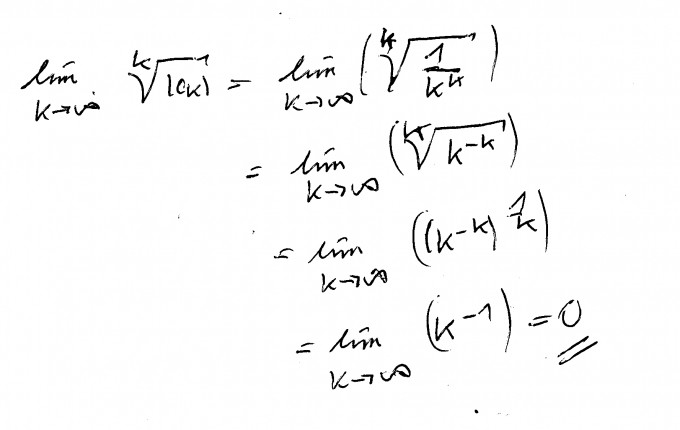 lim k→∞ ᵏ√|aₖ| = lim k→∞ (ᵏ√(1/kᵏ))
= lim k→∞ (ᵏ√(k⁻ᵏ))
= lim k→∞ ((k⁻ᵏ)^(1/k))
= lim k→∞ (k⁻¹) = 0